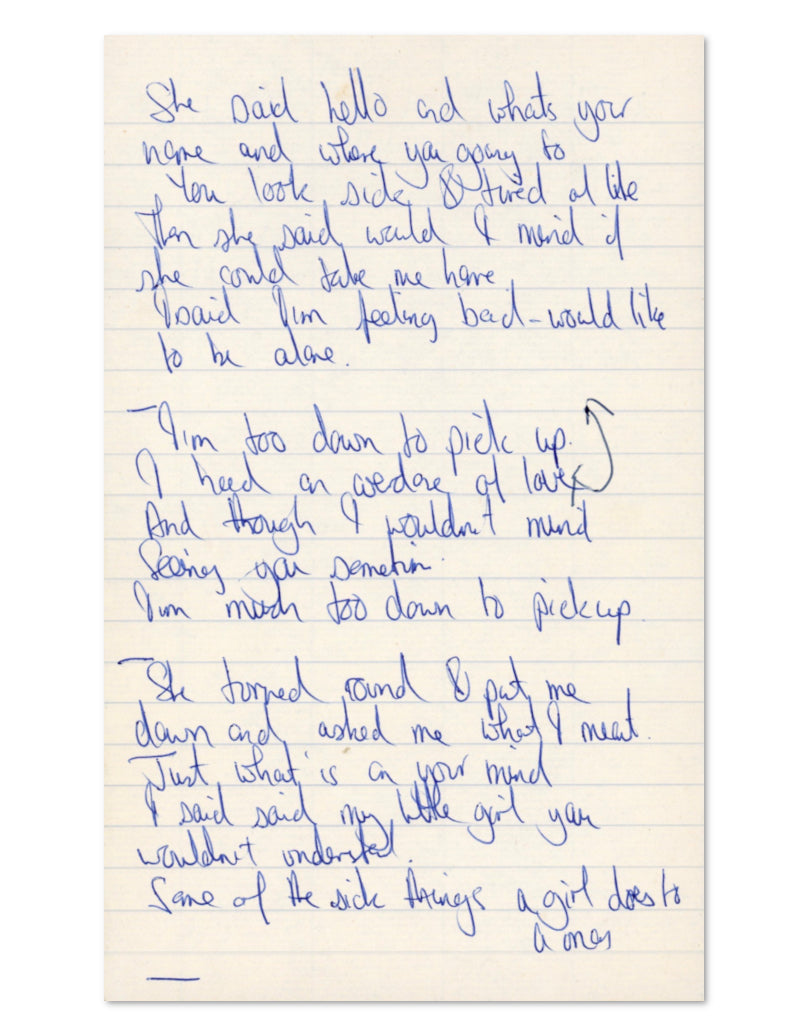 She said hello and whats your
name and where you going to
You look sick & tired of life
Then she said would I mind if
she could take me home
I said I'm feeling bad - would like
to be alone.
I'm too down to pick up.
I need an overdose of love
And though I wouldn't mind
Seeing you sometim
I'm much too down to pick up.
She turned round & put me
down and asked me what I meant.
Just what is on your mind
I said said my little girl you
wouldn't understand.
Some of the sick things a girl does to
a man